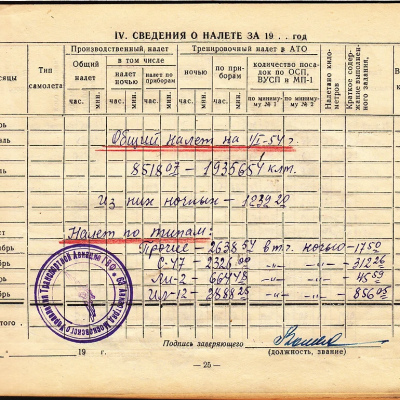 IV. СВЕДЕНИЯ О НАЛЕТЕ ЗА 19 . . год
Тип самолета
Производственный налет
Тренировочный налет в АТО
Общий налет
в том числе
налет ночью
налет по приборам
ночью
по приборам
количество посадок по ОСП, ВУСП и МП-1
по минимуму № 1
по минимуму № 2
Налетано километров
Краткое содержание выполненного задания,
час. мин. час. мин. час. мин. час. мин. час. мин.
Общий налет на 1/I-54 г.
8518 07 – 1935654 клт.
Из них ночных – 1239 20
Налет по типам:
Прочие – 2638 54 в т.ч. ночью – 17 50
С-47 – 2326 00 –„– –„– – 312 26
Ли-2 – 664 48 –„– –„– 45 59
Ил-12 – 2888 25 –„– –„– – 856 05
19 г.
Подпись заверяющего
(должность, звание)
— 25 —